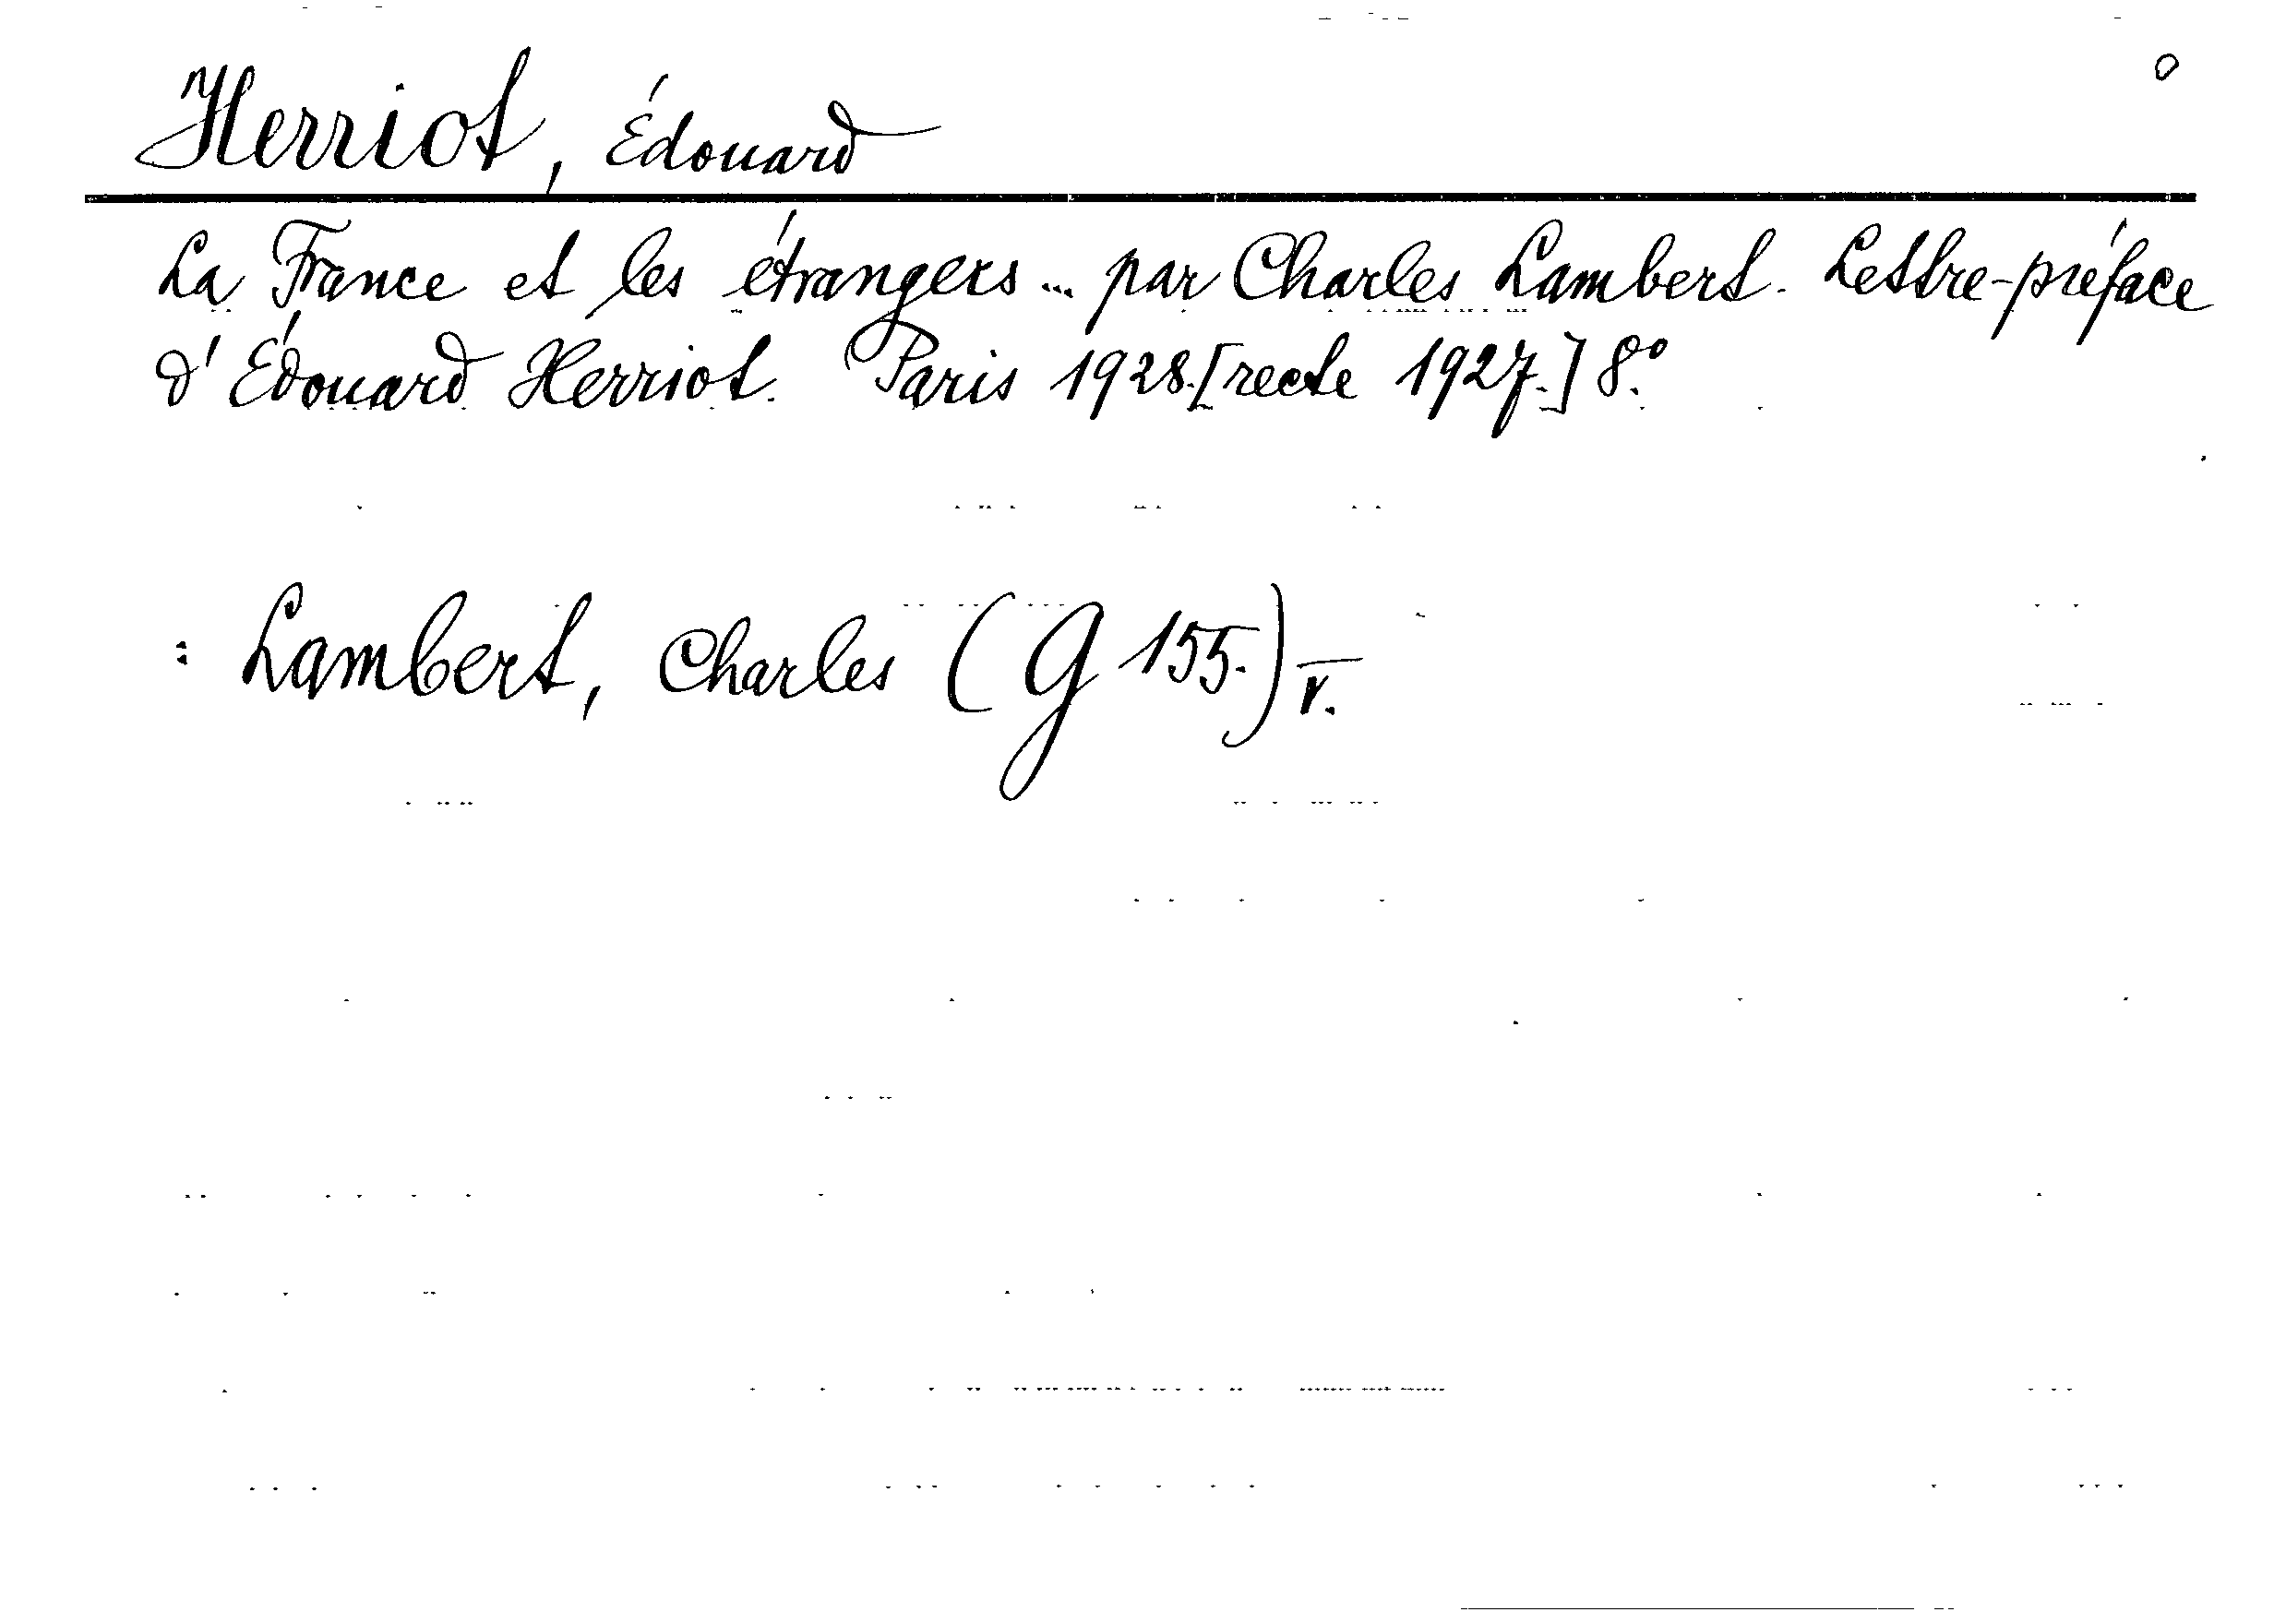 Herriot, Édouard
La France et les étrangers ... par Charles Lambert. Lettre-préface
d'Édouard Herriot. Paris 1928.[recte 1927.] 8.°
: Lambert, Charles (G 155.) V.